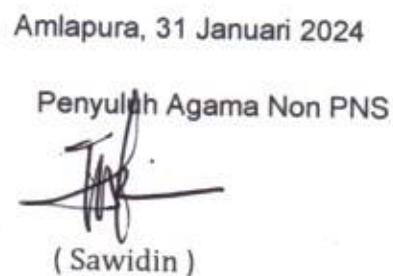 Amlapura, 31 Januari 2024
Penyuluh Agama Non PNS
( Sawidin )